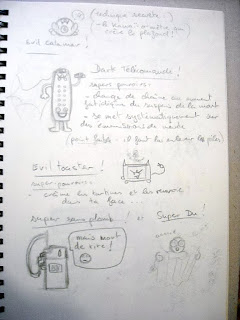 (technique secrète :
crève le plafond !
Evil Calamar !
Dark Télécommande !
super pouvoirs :
- change de chaîne au moment
fatidique du suspens de la mort
- se met systématiquement sur
des émissions de merde
(point faible : il faut lui enlever les piles)
Evil toaster !
super-pouvoir :
crâme les tartines et les renvoie
dans ta face...
super sans plomb ! et Super Du !
mais mort
de rire !